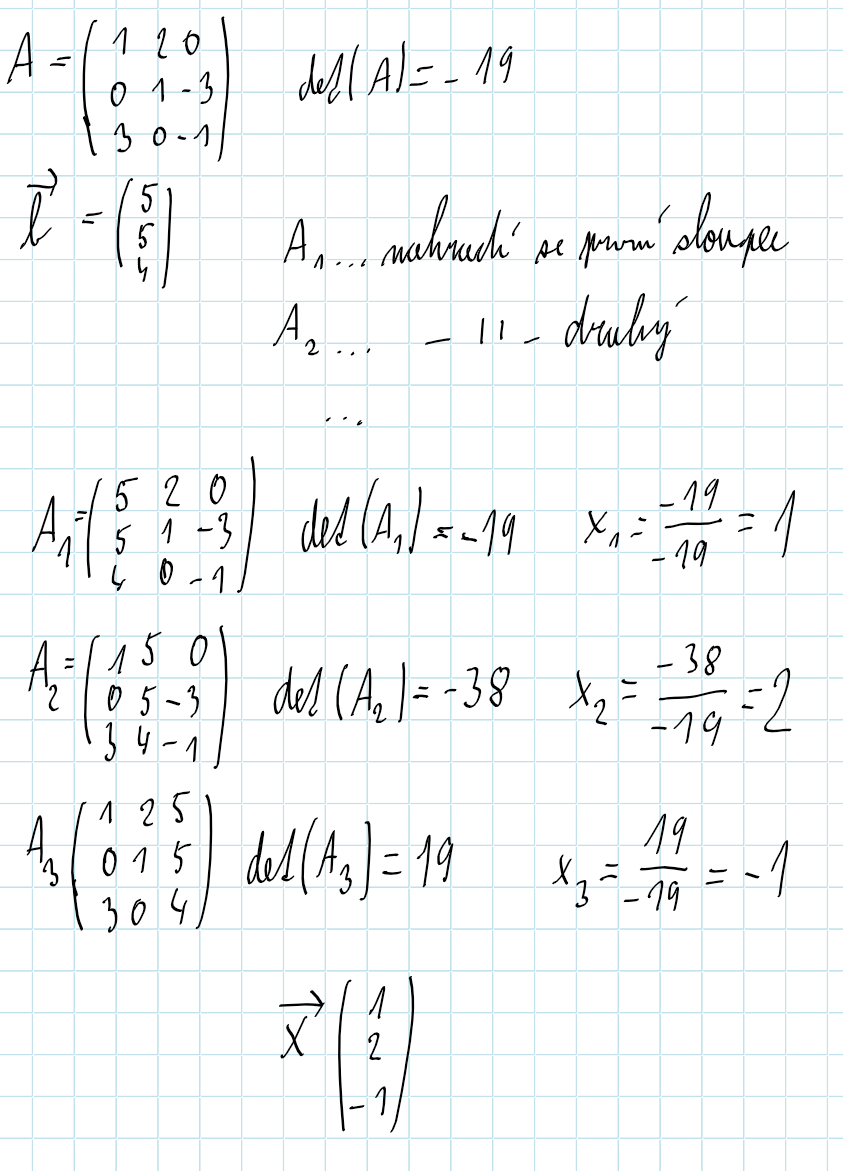 A = ( 1 2 0
0 1 -3
3 0 -1 ) det(A) = -19
b⃗ = ( 5
5
4 )
A₁... nahradí se první sloupec
A₂ ... - 11 - druhý
...
A₁ = ( 5 2 0
5 1 -3
4 0 -1 ) det(A₁) = -19 x₁ = -19/-19 = 1
A₂ = ( 1 5 0
0 5 -3
3 4 -1 ) det(A₂) = -38 x₂ = -38/-19 = 2
A₃ ( 1 2 5
0 1 5
3 0 4 ) det(A₃) = 19 x₃ = 19/-19 = -1
x⃗ ( 1
2
-1 )